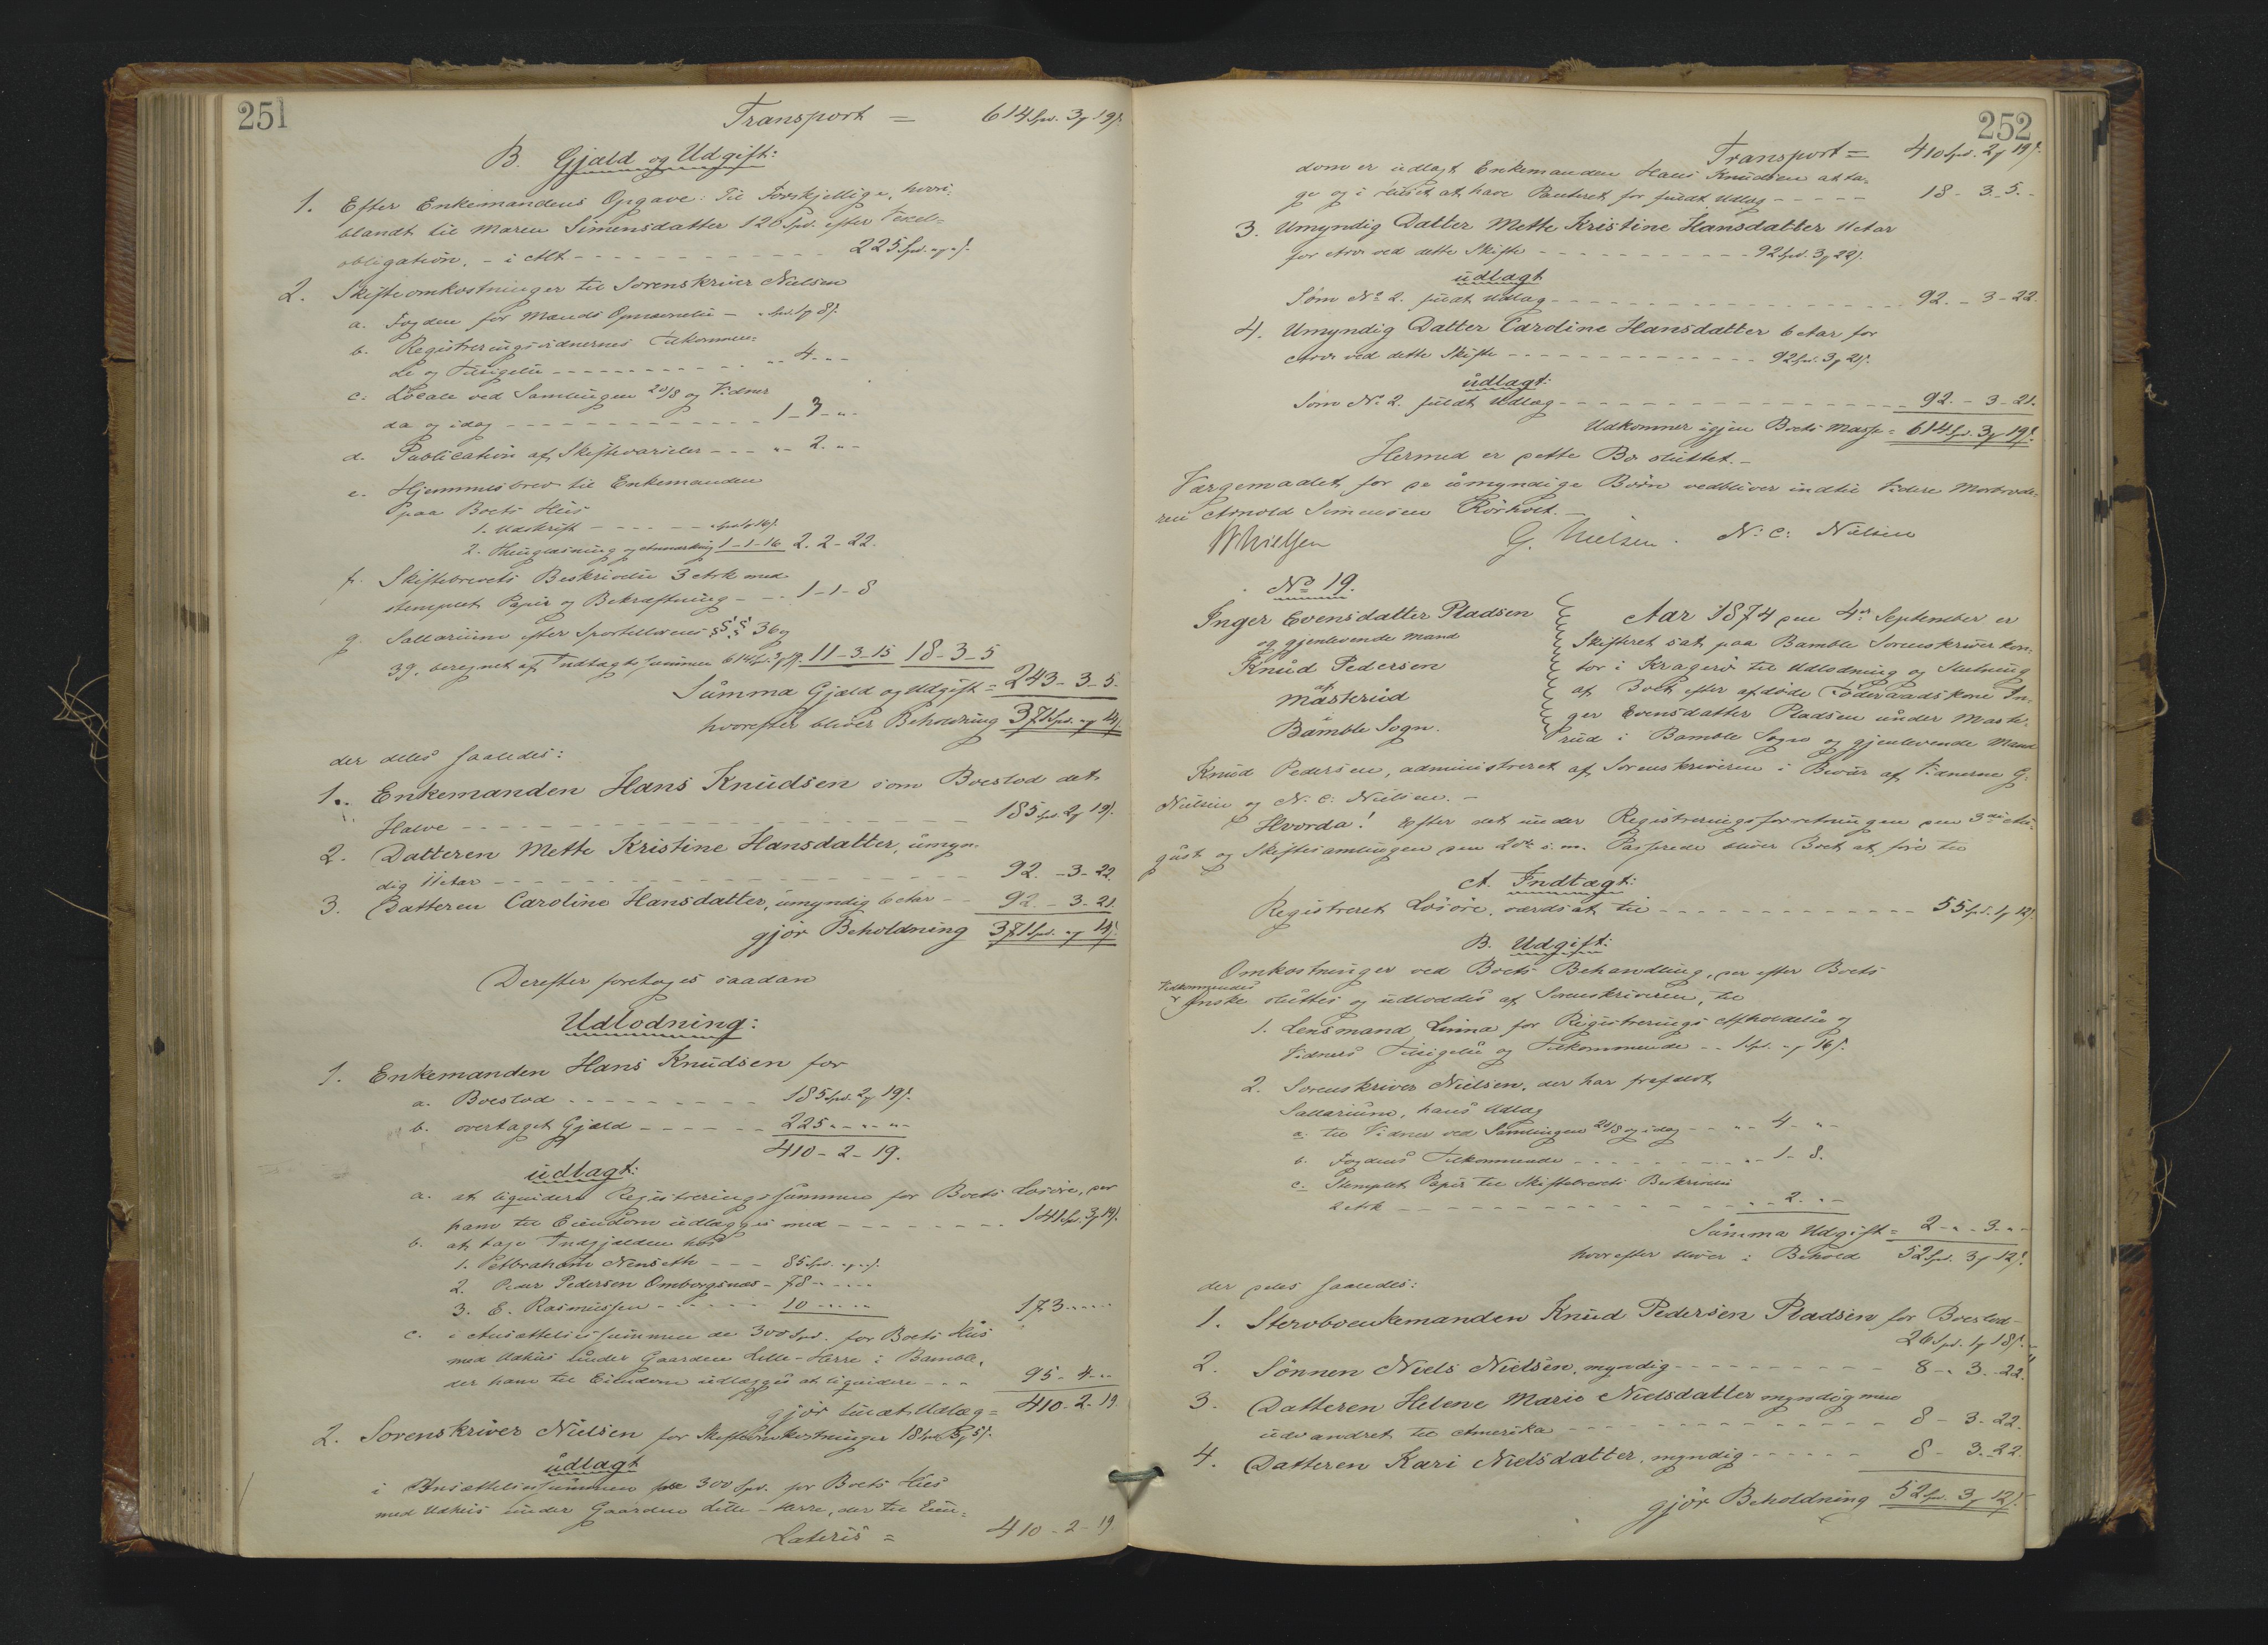 251
Transport = 614 Spd. 3 ƒ 19 ſ.
B. Gjæld og Udgift:
1. Efter Enkemandens Opgave: Til Forskjellige, hvori-
blandt til Maren Simensdatter 120 Spd. efter Vexel-
obligation. - i Alt - - - 225 Spd. " ƒ " ſ.
2. Skifteomkostninger til Sorenskriver Nielsen
a. Fogden for Mænds Opnævnelse - " Spd. 1 ƒ 8 ſ.
b. Registreringsvidnernes Tilkommen-
de og Tilsigelse - - - " - 4 - " -
c. Locale ved Samlingen 20/8 og Vidner
da og idag - - - 1 - 3 - " -
d. Publication af Skiftevarsler - - - " - 2. " -
e. Hjemmelsbrev til Enkemanden
paa Boets Hus
1. Udskrift - - - " Spd. 1 ƒ 6 ſ.
2. Thinglæsning og Anmærkning 1 - 1 - 16 2. 2 - 22.
f. Skiftebrevets Beskrivelse 3 Ark med
stemplet Papir og Bekræftning - - - 1 - 1 - 8
g. Sallarium efter Sportellovens §§ 36 og
39. beregnet af Indtægts Summen 614 Spd. 3 ƒ 19. 11 - 3 - 15 18 - 3 - 5
Summa Gjæld og Udgift = 243 - 3 - 5.
hvorefter bliver Beholdning 371 Spd. " ƒ 14 ſ.
der deles saaledes:
1. Enkemanden Hans Knudsen som Boeslod det
Halve - - - 185 Spd. 2 ƒ 19 ſ.
2. Datteren Mette Kristine Hansdatter, umyn-
dig 11 Aar - - - 92. - 3 - 22.
3. Datteren Caroline Hansdatter, umyndig 6 Aar - - 92. - 3 - 21.
gjør Beholdning 371 Spd. " ƒ 14 ſ.
Derefter foretoges saadan
Udlodning:
1. Enkemanden Hans Knudsen for
a. Boeslod - - - 185 Spd. 2 ƒ 19 ſ.
b. overtaget Gjæld - - - 225 " - " - " -
410 - 2 - 19.
udlagt:
a. at liquidere Registrerings Summen for Boets Løsøre, der
ham til Eiendom udlægges med - - - 141 Spd. 3 ƒ 19 ſ.
b. at tage Indgjælden hos
1. Abraham Nenseth - - - 85 Spd. " ƒ " ſ.
2. Peder Pedersen Omborgsnæs - 78 - " - " -
3. E. Rasmussen - - - 10 - " - " - 173 - " - " -
c. i Ansættelsessummen de 300 Spd. for Boets Hus
med Udhus under Gaarden Lille-Herre i Bamble,
der ham til Eiendom udlægges at liquidere - - " 95 - 4 - " -
gjør fuldt Udlæg = 410 - 2 - 19
2. Sorenskriver Nielsen for Skifteomkostninger 18 Spd. 3 ƒ 5 ſ.
udlagt
i Ansættelsessummen 300 Spd. for Boets Hus
med Udhus under Gaarden Lille-Herre, der til Eien-
Lateris = 410 - 2 - 19.
252
Transport = 410 Spd. 2 ƒ 19 ſ.
dom er udlagt Enkemanden Hans Knudsen at ta-
ge og i Huset at have Panteret for fuldt Udlæg - - - 18 - 3 - 5. -
3. Umyndig Datter Mette Kristine Hansdatter 11 Aar
for Arv ved dette Skifte - - - 92 Spd. 3 ƒ 22 ſ.
udlagt
Som No 2. fuldt Udlæg - - - 92. - 3 - 22.
4. Umyndig Datter Caroline Hansdatter 6 Aar for
Arv ved dette Skifte - - - 92 Spd. 3 ƒ 21 ſ.
udlagt:
Som No 2. fuldt Udlæg - - - 92. - 3 - 21.
Udkommer igjen Boets Masse = 614 Spd. 3 ƒ 19 ſ.
Hermed er dette Bo sluttet. -
Værgemaalet for de umyndige Børn vedbliver indtil Videre Morbrode-
ren Arnold Simensen Rørholt. -
WNielsen G. Nielsen. N: C: Nielsen
No 19.
Inger Evensdatter Pladsen
og gjenlevende Mand
Knud Pedersen
af
Masterud
i
Bamble Sogn.
Aar 1874 den 4de September er
Skifteret sat paa Bamble Sorenskriverkon-
tor i Kragerø til Udlodning og Slutning
af Boet efter afdøde Føderaadskone In-
ger Evensdatter Pladsen under Maste-
rud i Bamble Sogn og gjenlevende Mand
Knud Pedersen, administreret af Sorenskriveren i Overvær af Vidnerne G:
Nielsen og N. C: Nielsen. -
Hvorda! Efter det under Registreringsforretningen den 3die Au-
gust og Skiftesamlingen den 20de s. m. Passerede bliver Boet at føre til
A. Indtægt:
Registreret Løsøre, værdsat til - - - 55 Spd. 1 ƒ 12 ſ.
B. Udgift:
Omkostninger ved Boets Behandling, der efter Boets
Vedkommendes
Ønske sluttes og udloddes af Sorenskriveren, til
1. Lensmand Linna for Registrerings Afholdelse og
Vidners Tilsigelse og Tilkommende - - 1 Spd. " ƒ 16 ſ.
2. Sorenskriver Nielsen, der har frafaldt
Sallarium, hans Udlæg
a. til Vidner ved Samlingen 20/8 og idag - - " - 4 - " -
b. Fogdens Tilkommende - - - " - 1 - 8.
c. Stemplet Papir til Skiftebrevets Beskrivelse
2 Ark - - - " - 2. " -
Summa Udgift = 2 - " - 3. " -
hvorefter bliver i Behold 52 Spd. 3 ƒ 12 ſ.
der deles saaledes:
1. Stervboenkemanden Knud Pedersen Pladsen for Boeslod -
26 Spd. 1 ƒ 18 ſ.
2. Sønnen Niels Nielsen, myndig - - - 8 - 3 - 22.
3. Datteren Helene Marie Nielsdatter myndig men
udvandret til Amerika - - - 8 - 3 - 22.
4. Datteren Kari Nielsdatter, myndig - - - 8 - 3 - 22
gjør Beholdning 52 Spd. 3 ƒ 12 ſ.